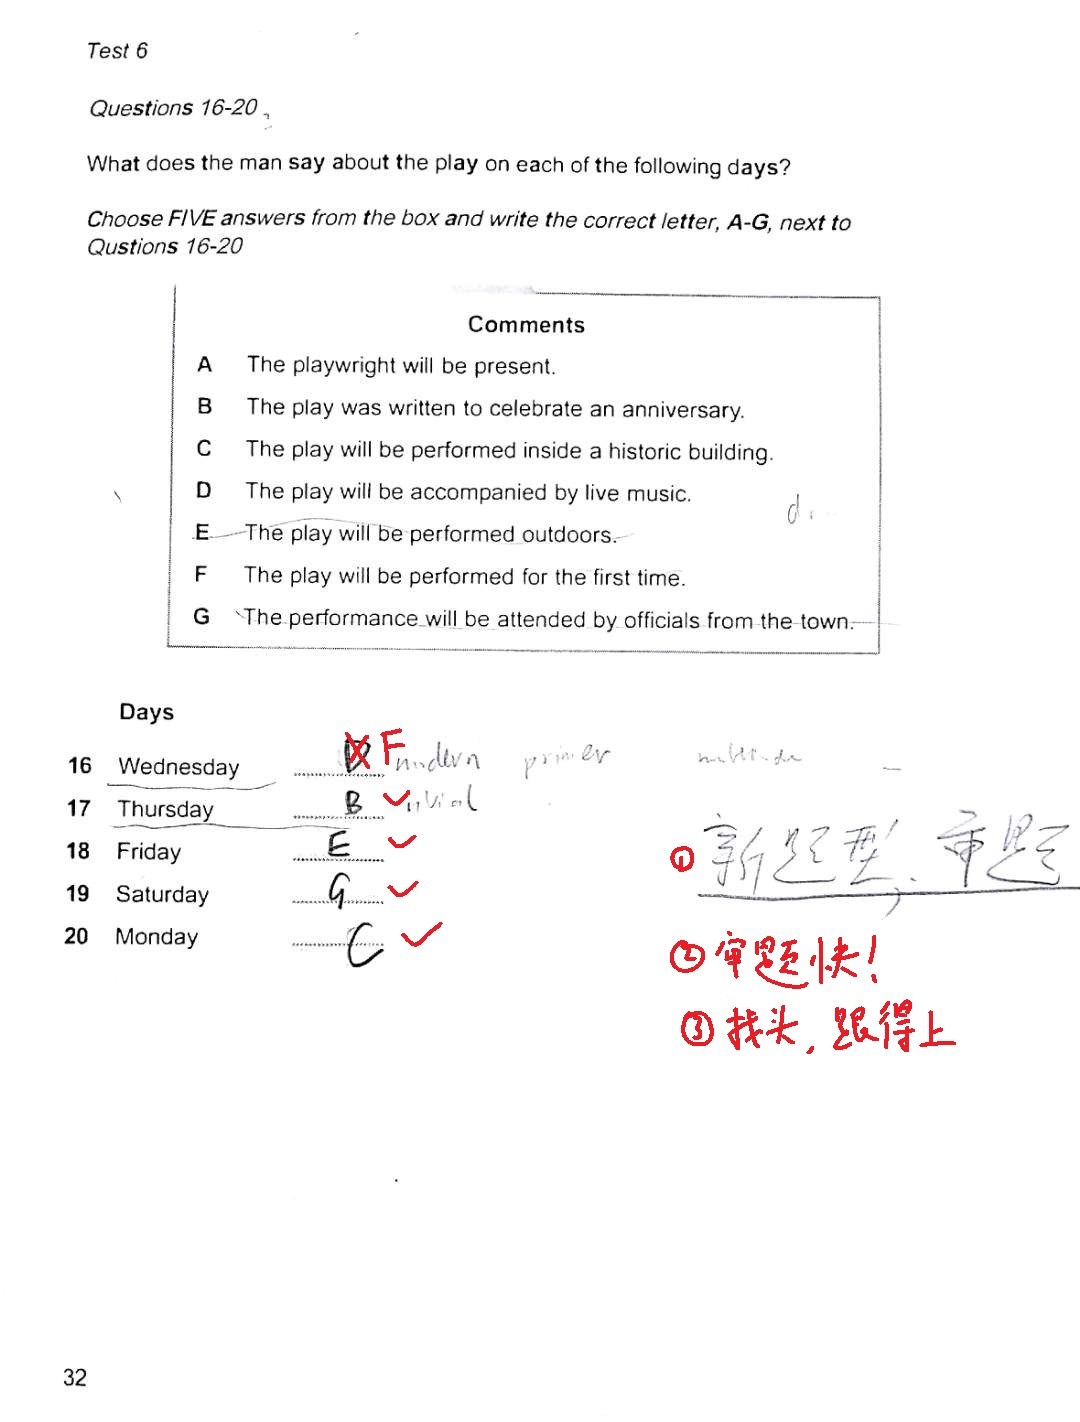 Test 6
Questions 16-20
What does the man say about the play on each of the following days?
Choose FIVE answers from the box and write the correct letter, A-G, next to
Qustions 16-20
Comments
A The playwright will be present.
B The play was written to celebrate an anniversary.
C The play will be performed inside a historic building.
D The play will be accompanied by live music.
E The play will be performed outdoors.
F The play will be performed for the first time.
G The performance will be attended by officials from the town.
Days
16 Wednesday D F modern primer
17 Thursday B
18 Friday E
19 Saturday G
20 Monday C
① 新题型，审题
② 审题快！
③ 找头，跟得上
32